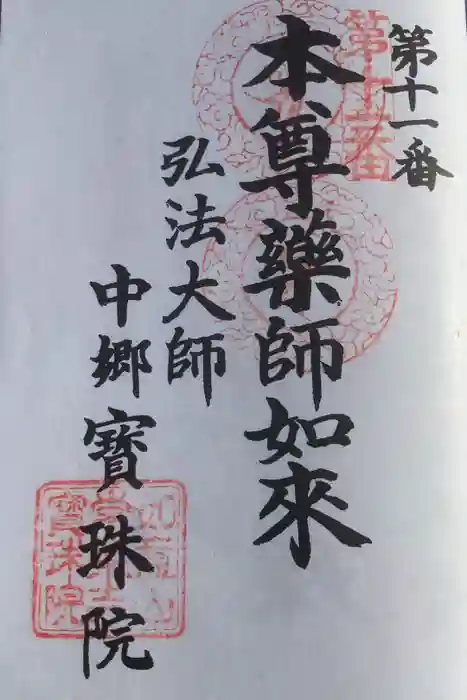 第十一番
本尊藥師如來
弘法大師
中郷寳珠院
第十一番